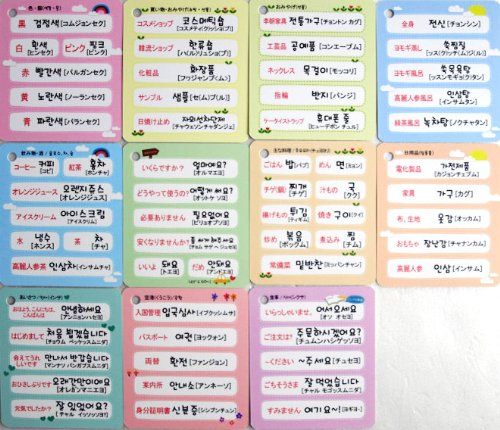 黒 검정색 [コムジョンセク]
白 흰색 [ヒンセク] ピンク 핑크 [ピンク]
赤 빨간색 [パルガンセク]
黄 노란색 [ノーランセク]
青 파란색 [パランセク]
コスメショップ 코스메틱숍
韓流ショップ 한류숍
化粧品 화장품
サンプル 샘플
日焼け止め 자외선차단제
李朝家具 전통가구 [チョントン カグ]
工芸品 공예품 [コンエープム]
ネックレス 목걸이 [モッコリ]
指輪 반지 [パンジ]
ケータイストラップ 휴대폰 줄 [ヒューデポン チュル]
全身 전신 [チョンシン]
ヨモギ蒸し 쑥찜질
ヨモギ風呂 쑥목욕탕
高麗人参風呂 인삼탕 [インサムタン]
緑茶風呂 녹차탕 [ノクチャタン]
コーヒー 커피 [コピ] 紅茶 홍차 [ホンチャ]
オレンジジュース 오렌지쥬스
アイスクリーム 아이스크림
水 냉수 茶 차 [チャ]
高麗人参茶 인삼차 [インサムチャ]
いくらですか? 얼마예요? [オルマエヨ]
どうやって使うの? 어떻게 써요? [オットケ ソヨ]
必要ありません 필요없어요 [ピリョオプソヨ]
安くなりませんか?
いいよ 돼요 [トエヨ] だめ 안돼요 [アンドエヨ]
ごはん 밥 [パプ] めん 면 [ミョン]
チゲ(鍋) 찌개 [チゲ] 汁もの 국 [クク]
揚げもの 튀김 [ティギム] 焼き 구이 [クイ]
炒め 볶음 [ポックム] 煮込み 찜 [チム]
常備菜 밑반찬 [ミッパンチャン]
電化製品 가전제품 [カジョンチェプム]
家具 가구 [カグ]
布、生地 옷감 [オッカム]
おもちゃ 장난감 [チャナンカム]
高麗人参 인삼 [インサム]
おはよう、こんにちは、こんばんは 안녕하세요 [アンニョンハセヨ]
はじめまして 처음 뵙겠습니다 [チョウム ペッケスムニダ]
会えてうれしいです 만나서 반갑습니다 [マンナソ パンガプスムニダ]
おひさしぶりです 오래간만이에요 [オレガンマニエヨ]
元気でしたか? 잘 있었어요? [チャル イッソッソヨ?]
入国管理 입국심사 [イプクッシムサ]
パスポート 여권 [ヨックォン]
両替 환전 [ファンジョン]
案内所 안내소 [アンネーソ]
身分証明書 신분증 [シンブンチュン]
いらっしゃいませ。 어서오세요 [オソ オセヨ]
ご注文は? 주문하시겠어요? [チュムンハシゲッソヨ]
~ください ~주세요 [チュセヨ]
ごちそうさま 잘 먹었습니다 [チャル モゴッスムニダ]
すみません 여기요~! [ヨギヨ~]